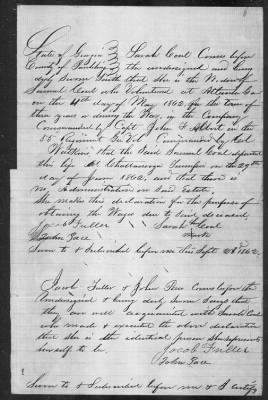 State of Georgia } Sarah Coal Comes before
County of Paulding } the undersigned and being
duly Sworn Saith that she is the Widow of
Samuel Coal who Volunteered at Atlanta Ga
on the 4th day of May 1862, for the term of
three years or during the War, in the Company
Commanded by Capt. John F Albert in the
55 Regiment Ga Vol. Commanded by Col
Watkins that the Said Samuel Coal departed
this life at Chattanooga Tennessee on the 29th
day of June 1862, and that there is
no Administration on Said Estate,
She makes this declaration for the purpose of
obtaining the Wages due to Said deceased
Jacob Fuller Sarah Coal
John Pace mark
Sworn to & Subscribed before me this Sept 1862,
Jacob Fuller & John Pace Comes before the
undersigned & being duly Sworn Says that
they are well acquainted with Sarah Coal
who made & executed the above declaration
that She is the identical person She represents
herself to be,
Jacob Fuller
John Pace
Sworn to & Subscribed before me & I certify